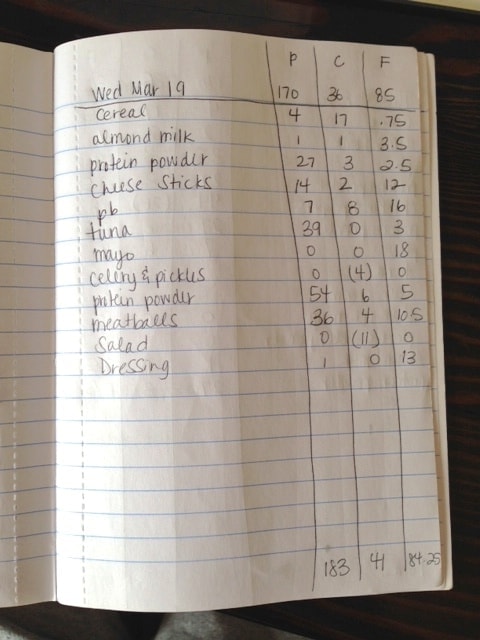 P C F
Wed Mar 19 170 36 85
Cereal 4 17 .75
almond milk 1 1 3.5
protein powder 27 3 2.5
Cheese Sticks 14 2 12
pb 7 8 16
tuna 39 0 3
mayo 0 0 18
celery & pickles 0 (4) 0
protein powder 54 6 5
meatballs 36 4 10.5
Salad 0 (11) 0
Dressing 1 0 13
183 41 84.25